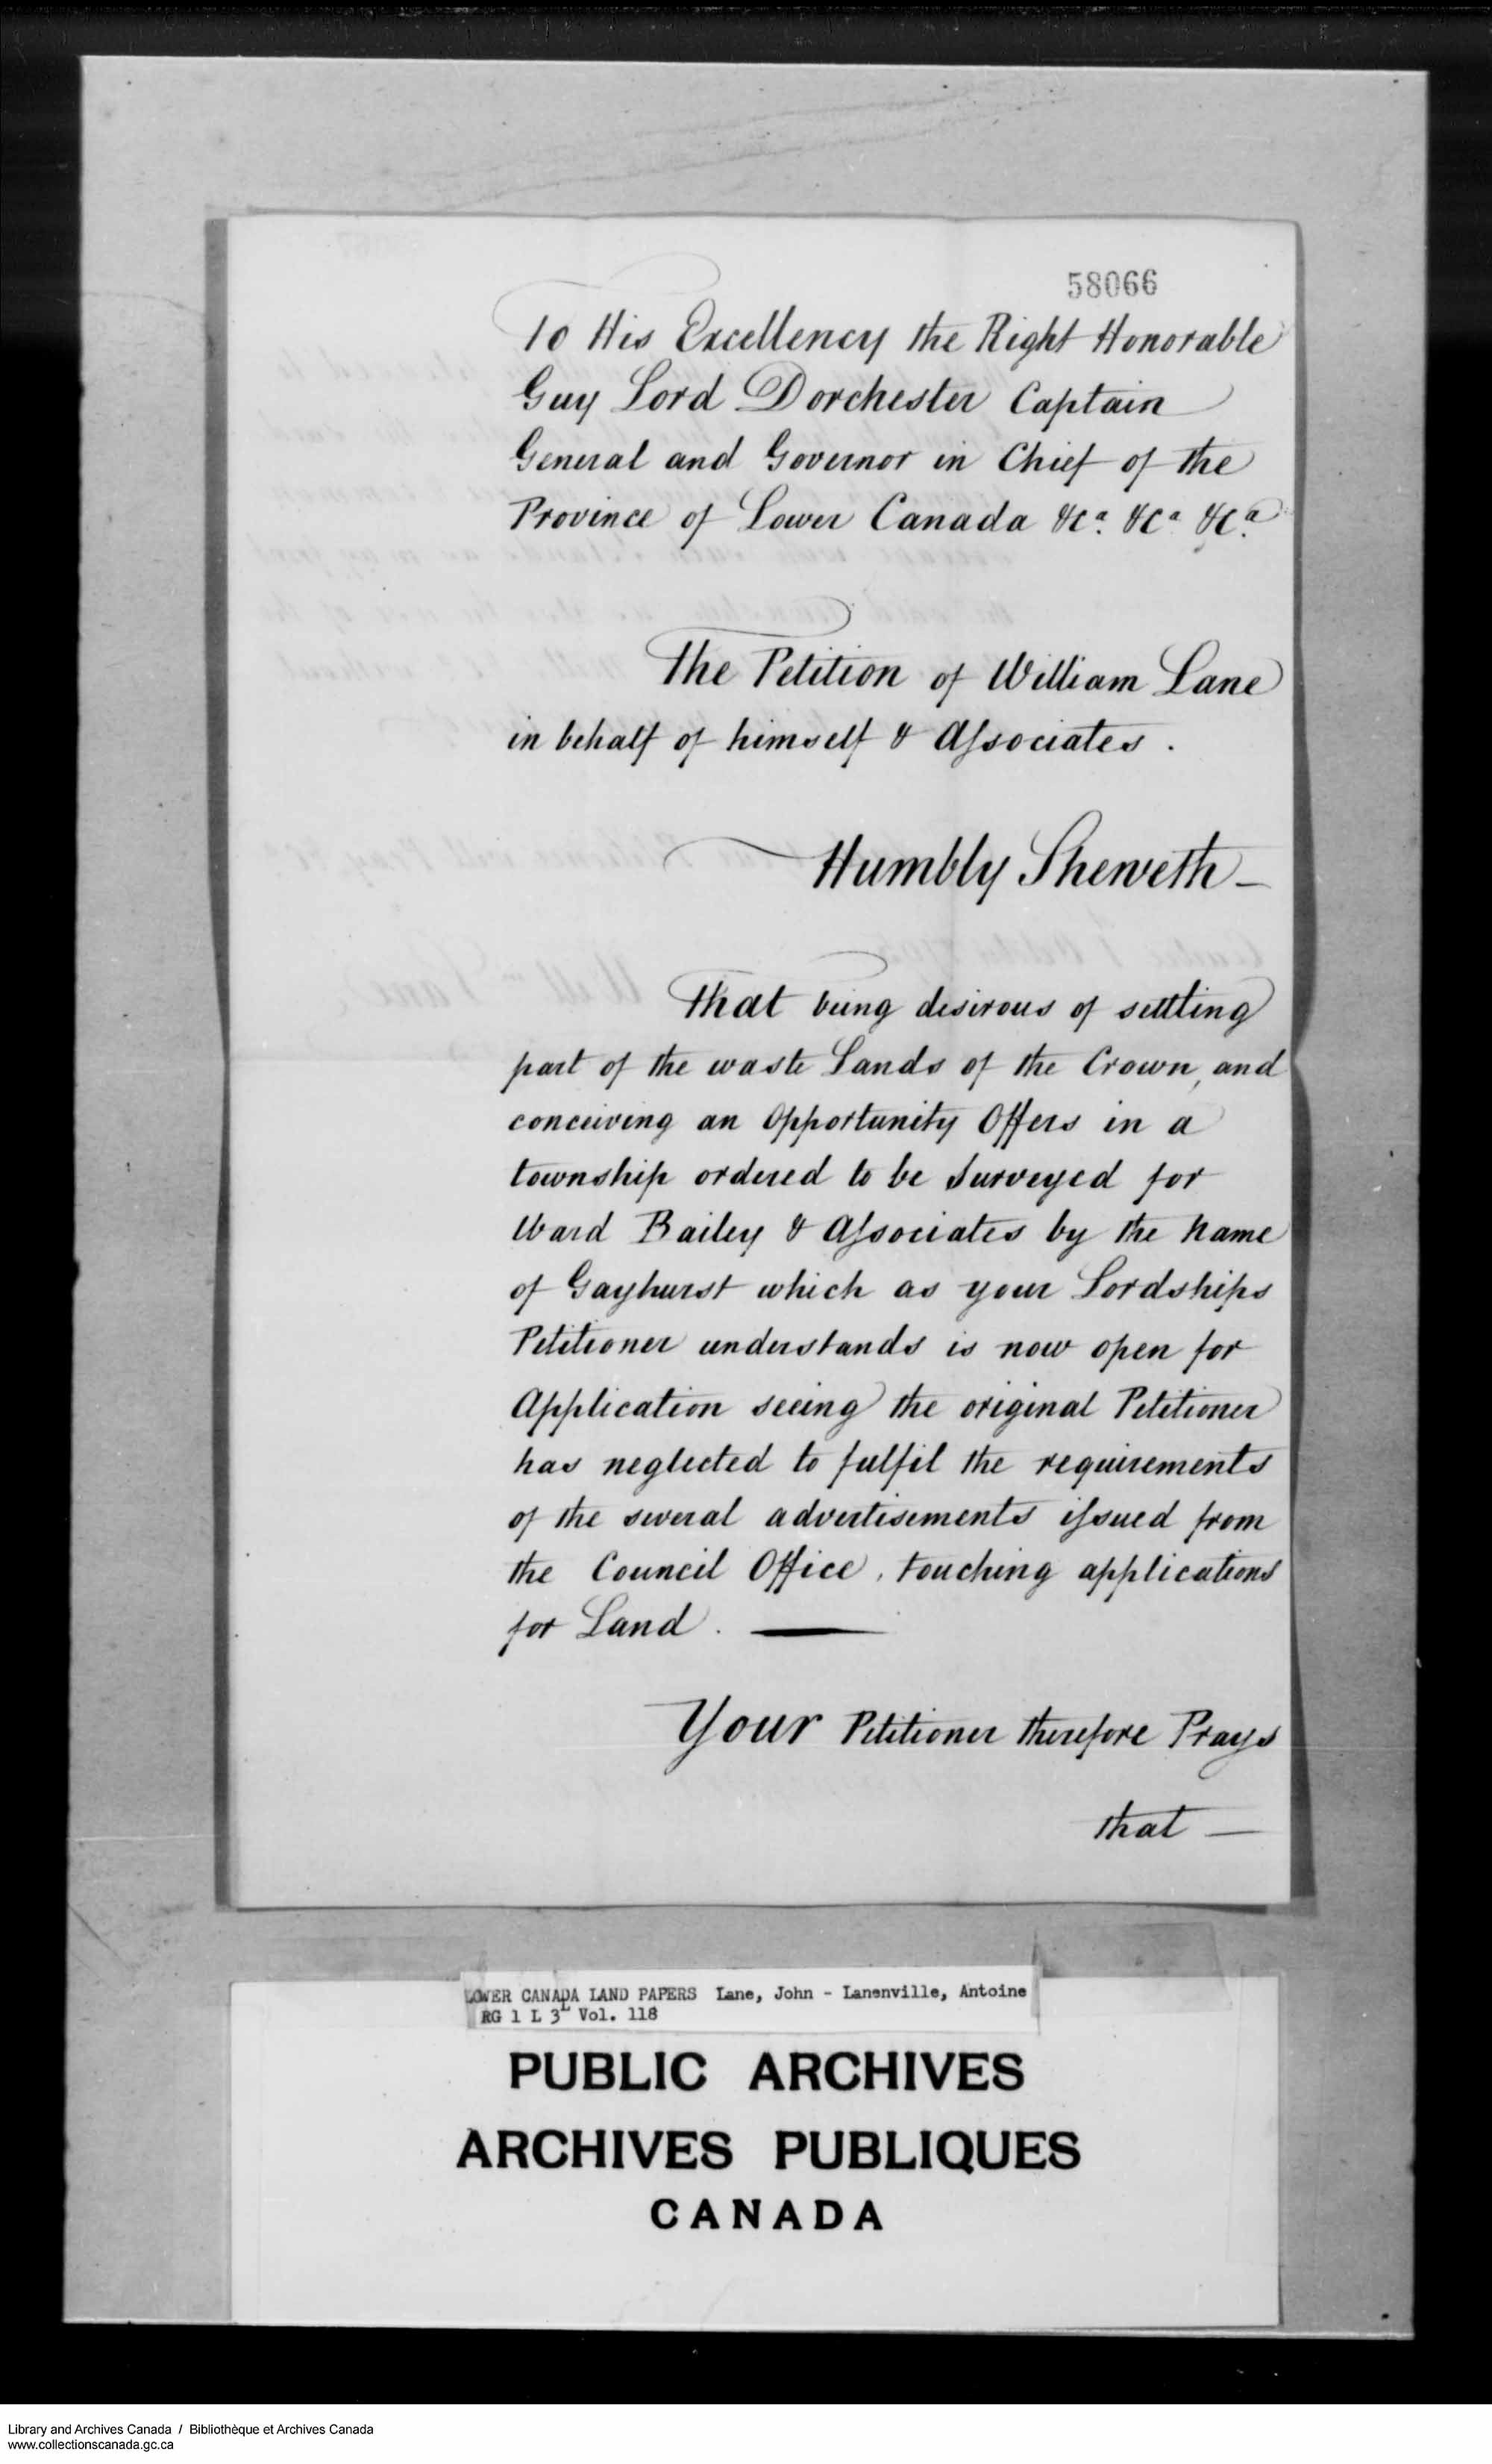 58066
To His Excellency the Right Honorable
Guy Lord Dorchester Captain
General and Governor in Chief of the
Province of Lower Canada &cª. &cª &cª.
The Petition of William Lane
in behalf of himself & Aſsociates.
Humbly Sheweth —
That being desirous of settling
part of the waste Lands of the Crown, and
conceiving an Opportunity Offers in a
township ordered to be Surveyed for
Ward Bailey & Aſsociates by the Name
of Gayhurst which as your Lordships
Petitioner understands is now open for
Application seeing the original Petitioner
has neglected to fulfil the requirements
of the several advertisements iſsued from
the Council Office, touching applications
for Land. —
Your Petitioner therefore Prays
that —
LOWER CANADA LAND PAPERS Lane, John - Lanenville, Antoine
RG 1 L 3ᴸ Vol. 118
PUBLIC ARCHIVES
ARCHIVES PUBLIQUES
CANADA
Library and Archives Canada / Bibliothèque et Archives Canada
www.collectionscanada.gc.ca